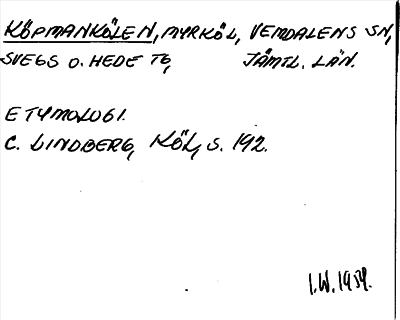 KÖPMANKÖLEN, MYRKÖL, VEMDALENS SN,
SVEGS O. HEDE TG, JÄMTL. LÄN.
ETYMOLOGI.
C. LINDBERG, KÖL, S. 192.
I.W. 1959.